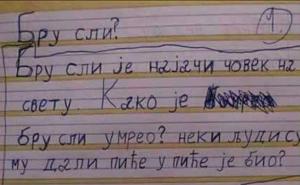 Бру сли? 1
Бру сли је најачи човек на
свету. Како је
бру сли умрео? неки људи су
му дали пиће у пиће је био?